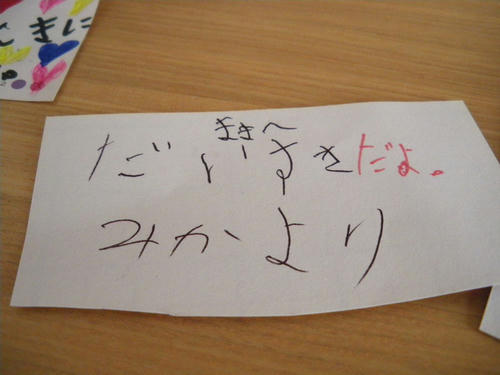 きに
まきへ
だいすきだよ。
みかより